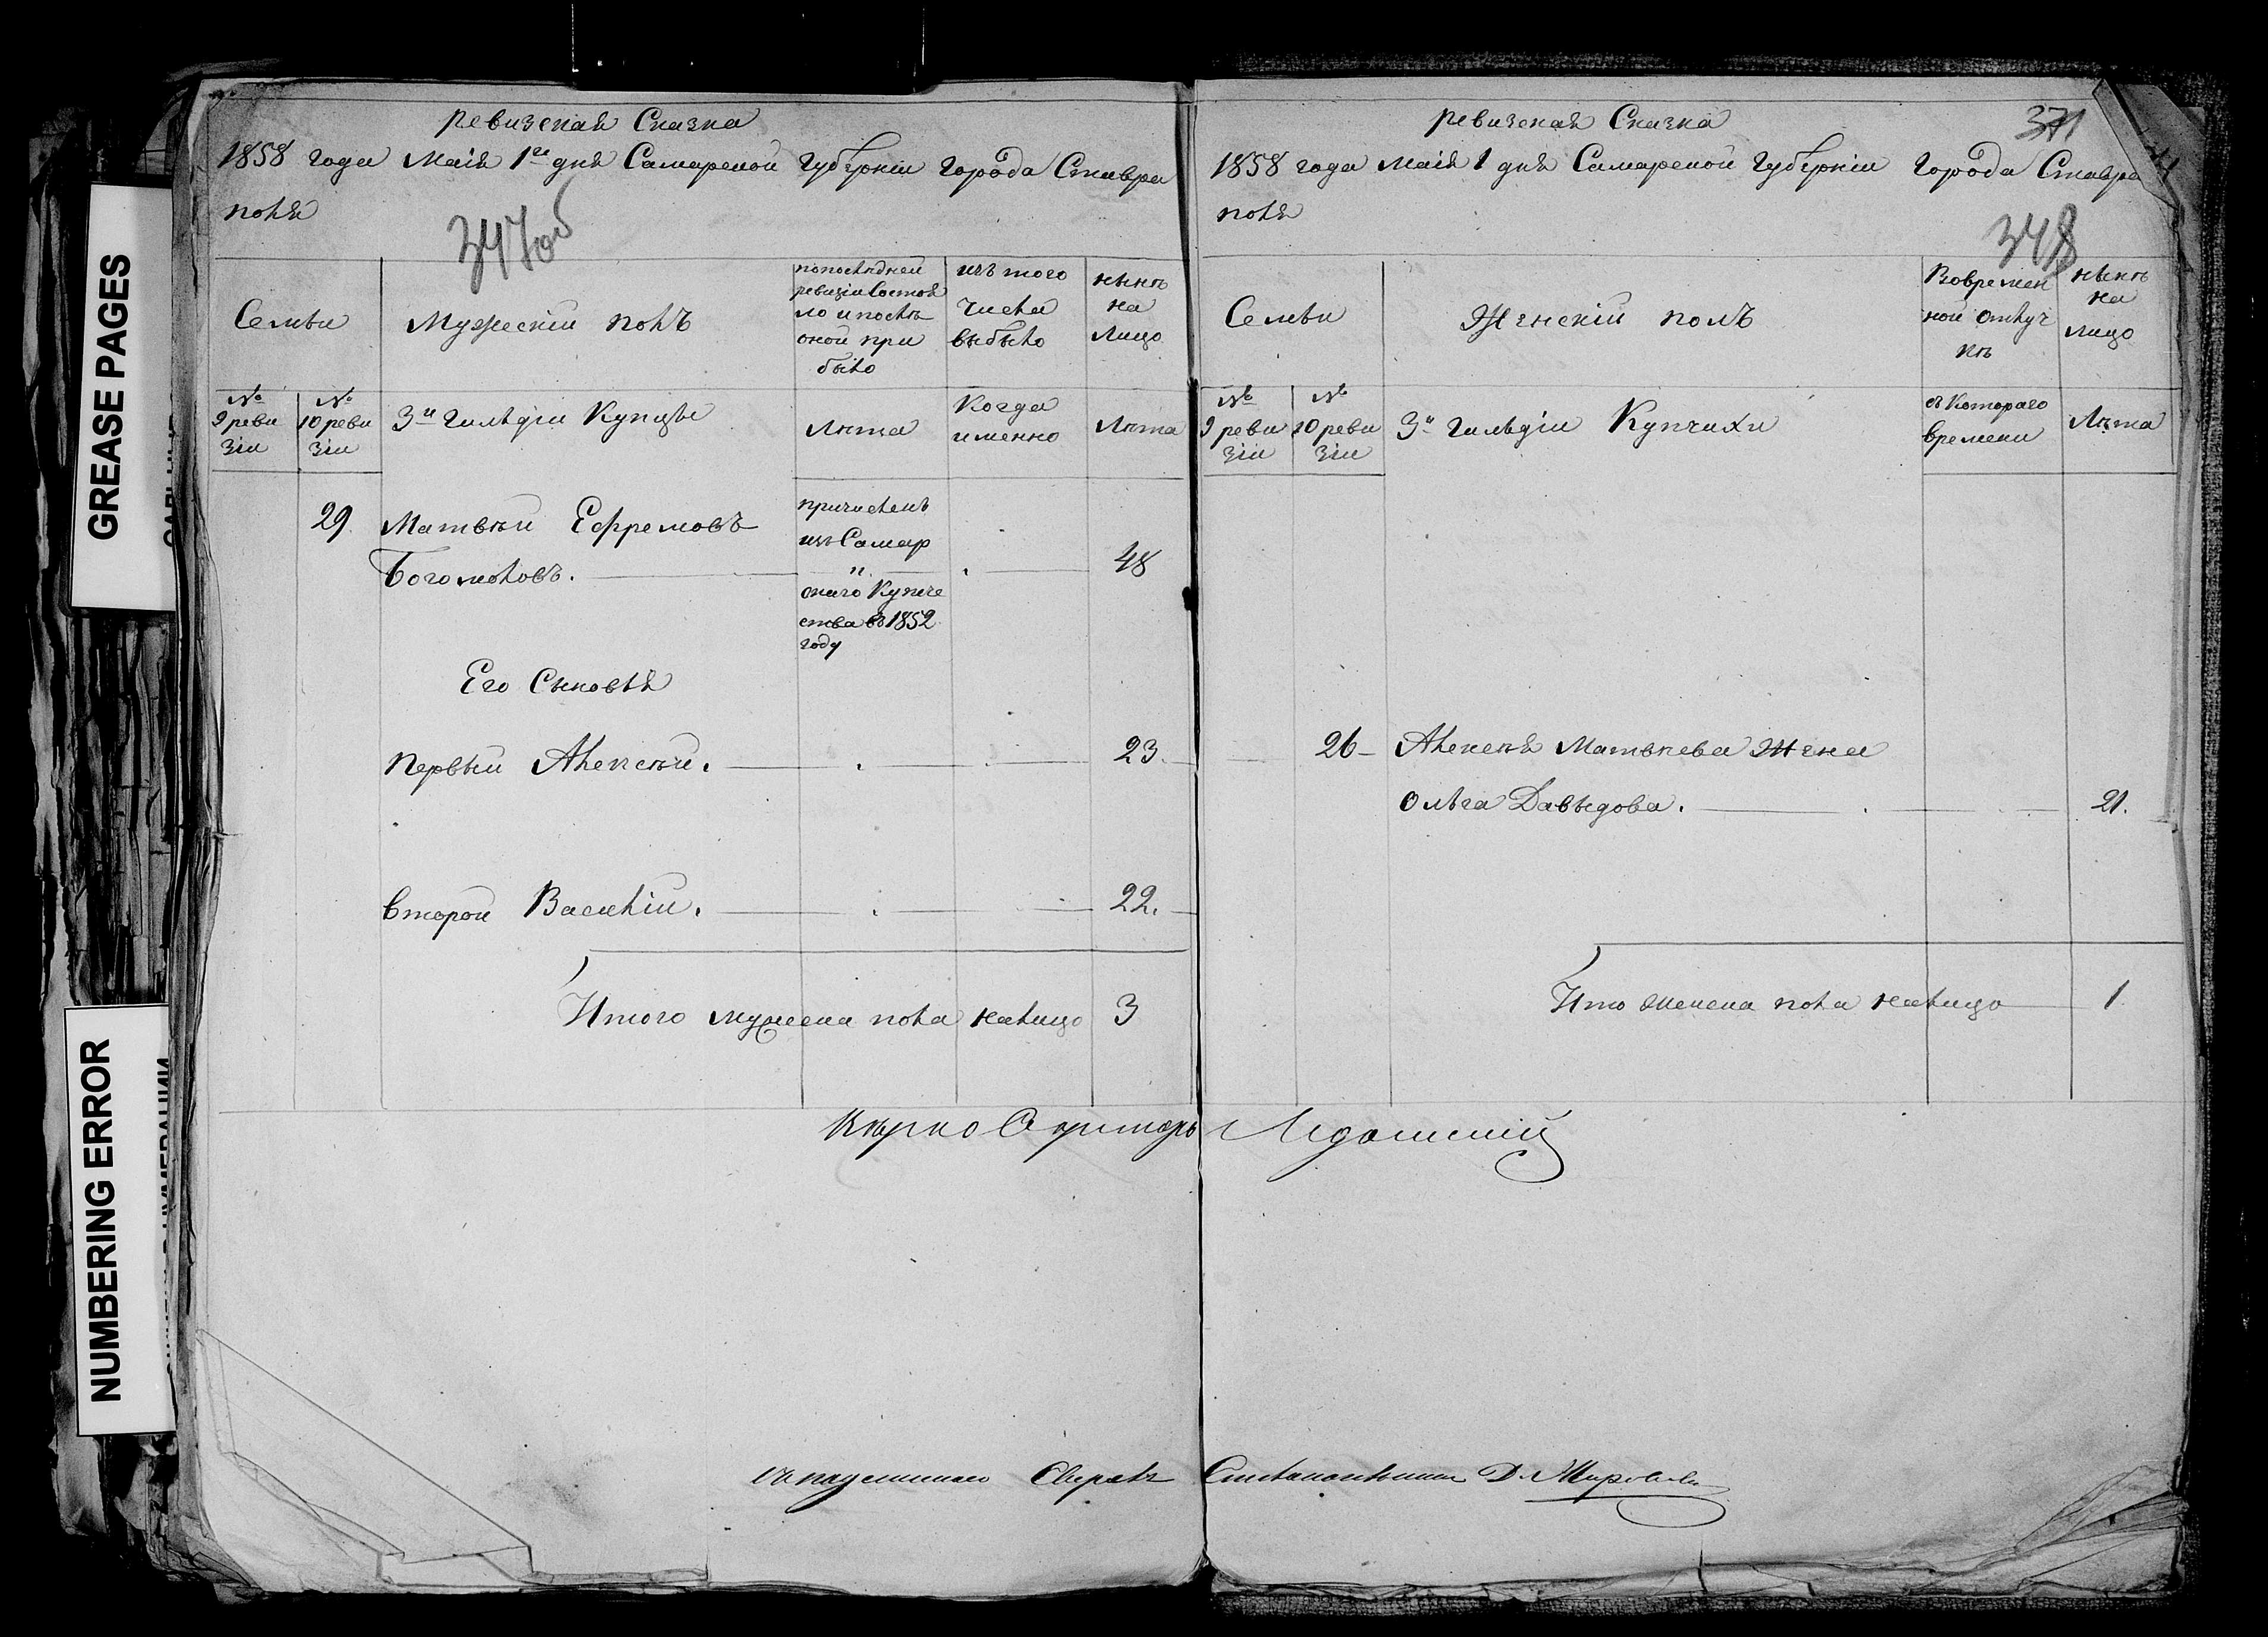 GREASE PAGES
NUMBERING ERROR
Ревизская Сказка
1858 года Маія 1го дня Самарской Губерніи города Ставро
поля
347об
Семьи
Мужескій полъ
попослѣдней
ревизіи состоя
ло и послѣ
оной при
было
изъ того
числа
выбыло
нынѣ
на
лицо
№
9 реви
зіи
№
10 реви
зіи
3й гильдіи Купцы
Лѣта
Когда
именно
Лѣта
29.
Матвѣй Ефремовъ
Богомоловъ.
причисленъ
изъ Самар
скаго Купече
ства въ 1852
году
48
Его Сыновья
Первый Алексѣй.
23.
Второй Василій.
22.
Итого мужеска пола налицо 3
Ревизская Сказка
371
1858 года Маія 1 дня Самарской Губерніи города Ставро
поля
348
Семьи
Женскій полъ
Вовремен
ной отлуч
кѣ
нынѣ
на
лицо
№
9 реви
зіи
№
10 реви
зіи
3й Гильдіи Купчихи
съ Котораго
времени
Лѣта
26
Алексѣя Матвѣева Жена
Ольга Давыдова.
21.
Ито женска пола налицо 1
Съ подлиннымъ Сверялъ